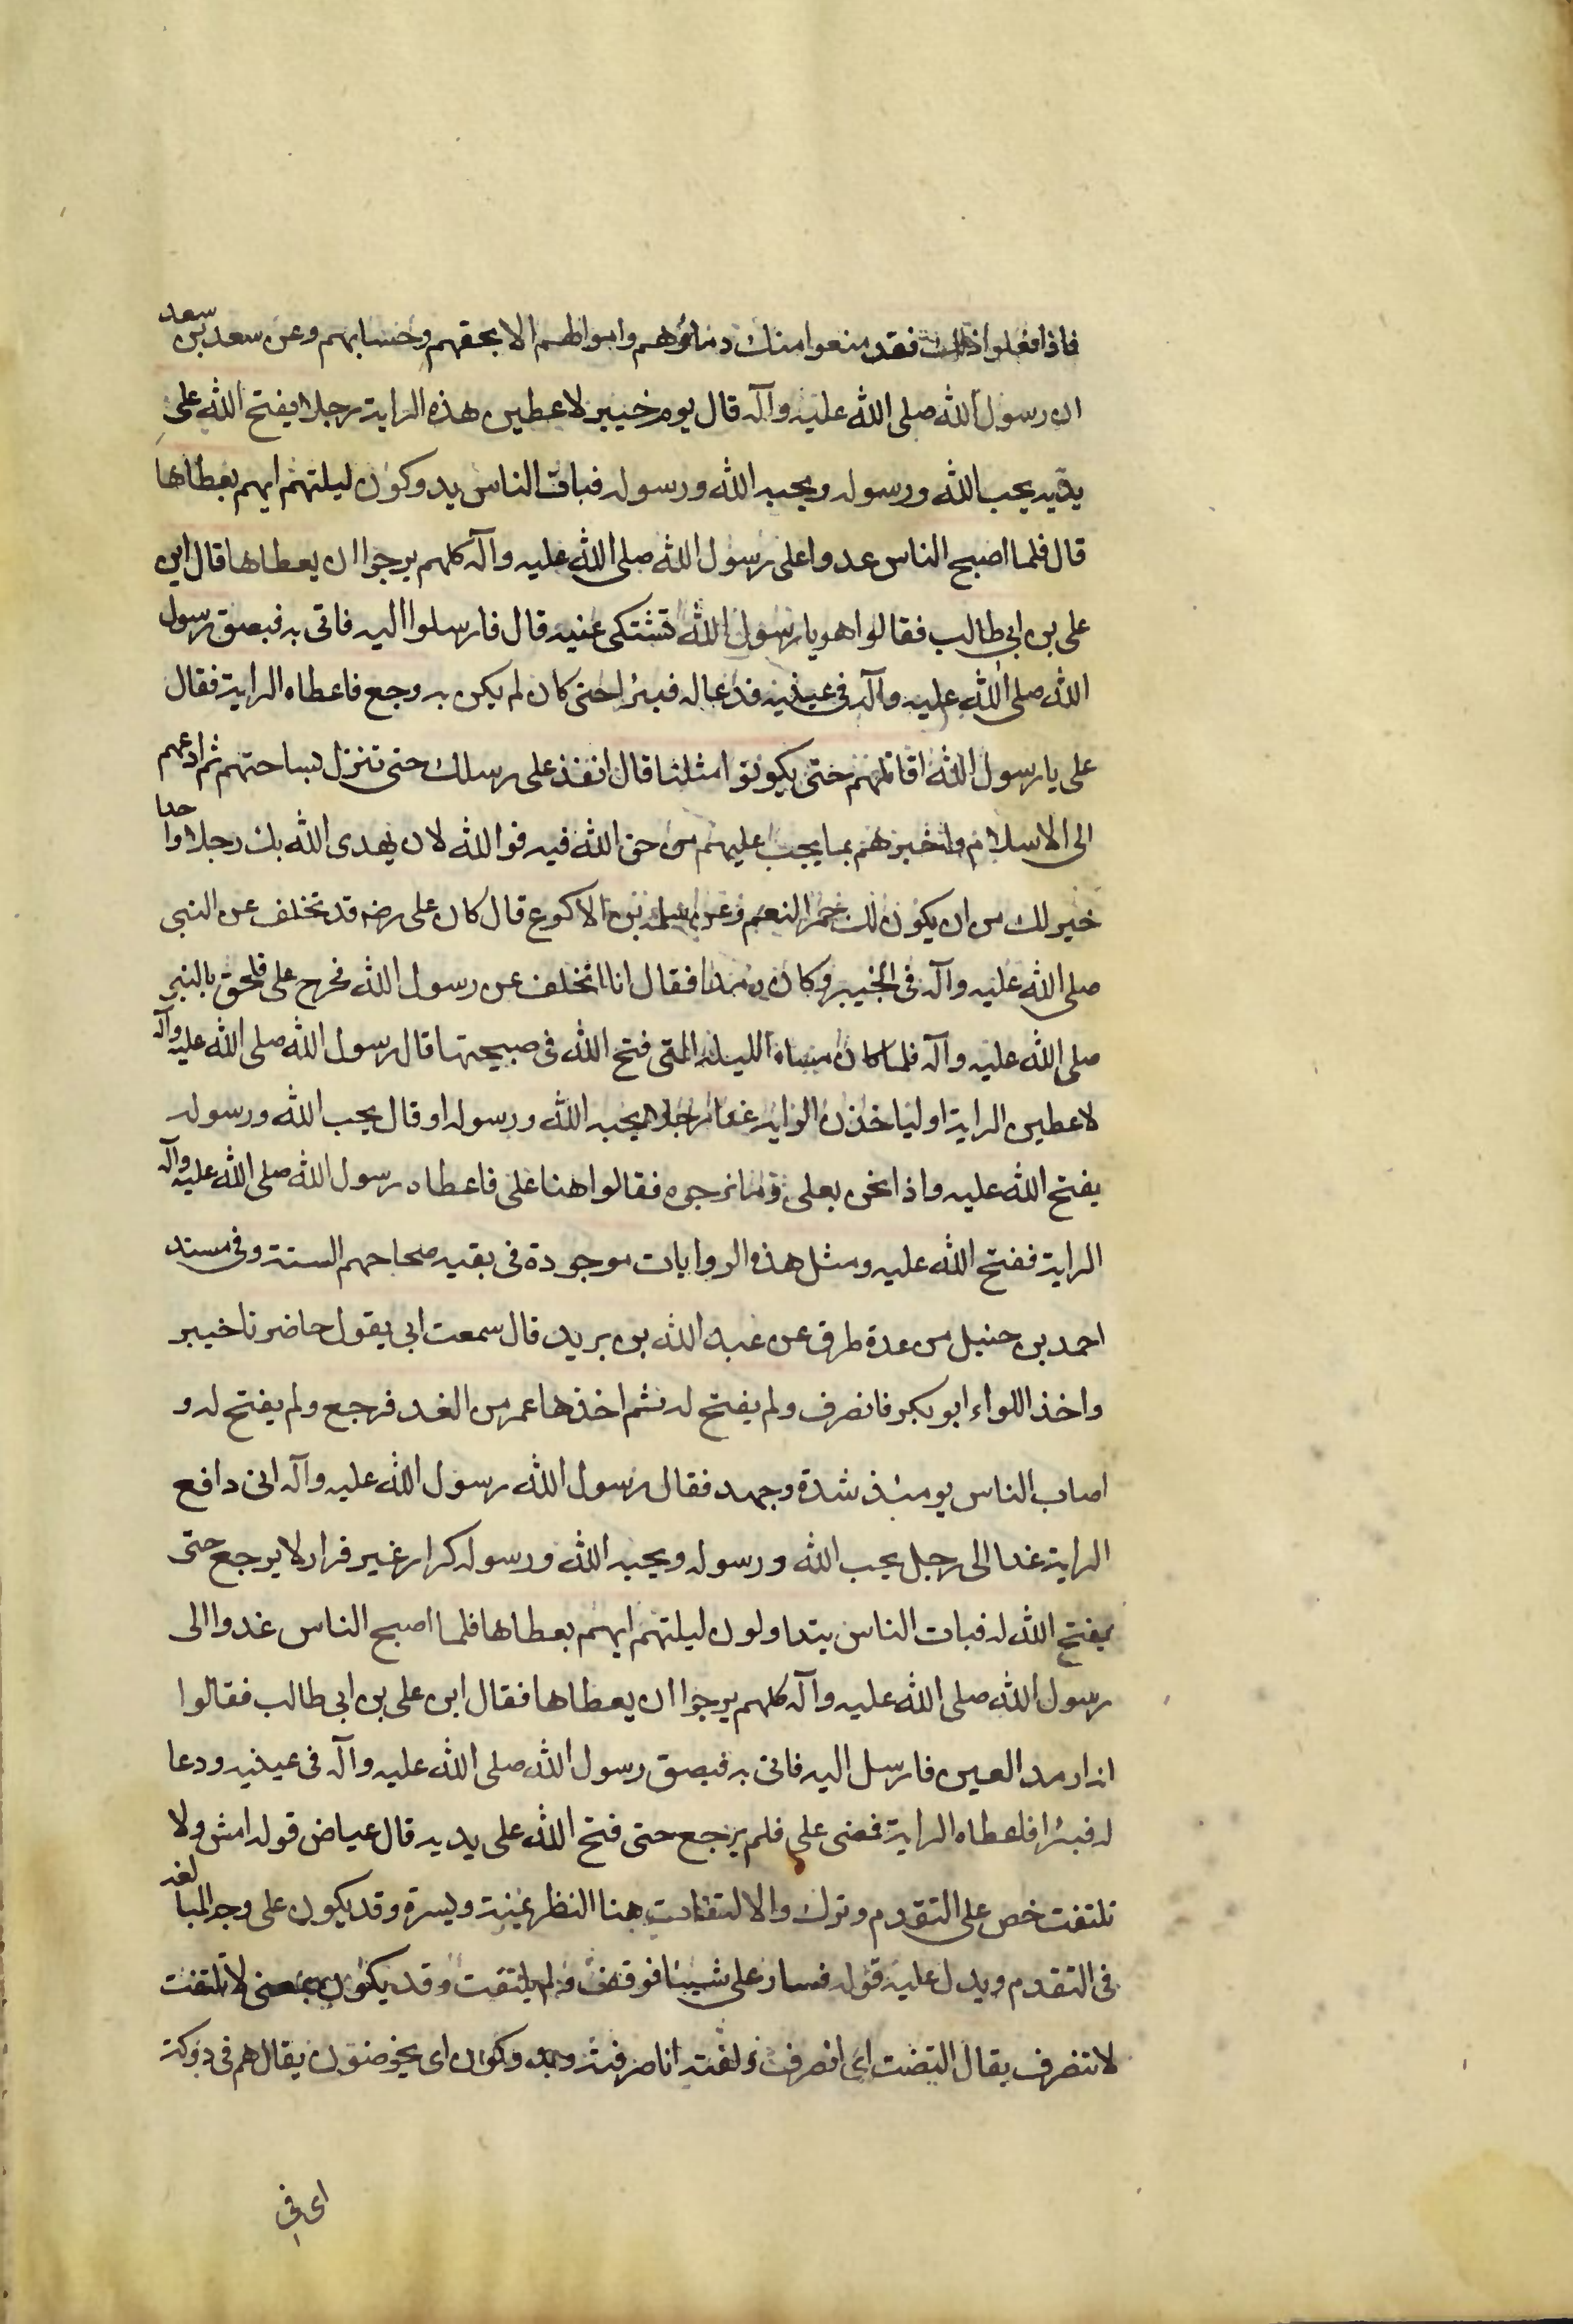 فاذا فعلوا ذلك فقد منعوا منك دمائهم واموالهم الا بحقهم وحسابهم وعن سعد بن سعد
ان رسول الله صلى الله عليه وآله قال يوم خيبر لاعطين هذه الراية رجلا يفتح الله على
يديه يحب الله ورسوله ويحبه الله ورسوله فبات الناس يدوكون ليلتهم ايهم يعطاها
قال فلما اصبح الناس عدوا على رسول الله صلى الله عليه وآله كلهم يرجوا ان يعطاها قال اين
على بن ابى طالب فقالوا هو يا رسول الله تشتكى عنيه قال فارسلوا اليه فاتى به فبصق رسول
الله صلى الله عليه وآله فى عينيه فدعا له فبرا حتى كان لم يكن به وجع فاعطاه الراية فقال
على يا رسول الله اقاتلهم حتى يكونوا مثلنا قال انفذ على رسلك حتى تنزل بساحتهم ثم ادعهم
الى الاسلام واخبرهم بما يجب عليهم من حق الله فيه فوالله لان يهدى الله بك رجلا واحدا
خير لك من ان يكون لك حمر النعم وعن سلمة بن الاكوع قال كان على رضه قد تخلف عن النبى
صلى الله عليه وآله فى الخيبر وكان رمدا فقال انا اتخلف عن رسول الله فخرج على فلحق بالنبى
صلى الله عليه وآله فلما كان مساء الليلة التى فتح الله فى صبيحتها قال رسول الله صلى الله عليه وآله
لاعطين الراية او لياخذن الراية غدا رجلا يحبه الله ورسوله او قال يحب الله ورسوله
يفتح الله عليه واذا نحن بعلى وما نرجوه فقالوا هنا على فاعطاه رسول الله صلى الله عليه وآله
الراية ففتح الله عليه ومثل هذه الروايات موجودة فى بقيه صحاحهم الستة وفى مسند
احمد بن حنبل من عدة طرق عن عبد الله بن بريد قال سمعت ابى يقول حاضرنا خيبر
واخذ اللواء ابو بكر فانصرف ولم يفتح له ثم اخذها عمر من الغد فرجع ولم يفتح له و
اصاب الناس يومئذ شدة وجهد فقال رسول الله رسول الله عليه وآله انى دافع
الراية غدا الى رجل يحب الله ورسوله ويحبه الله ورسوله كرار غير فرار لا يرجع حتى
يفتح الله له فبات الناس يتداولون ليلتهم ايهم يعطاها فلما اصبح الناس غدوا الى
رسول الله صلى الله عليه وآله كلهم يرجوا ان يعطاها فقال اين على بن ابى طالب فقالوا
انه ارمد العين فارسل اليه فاتى به فبصق رسول الله صلى الله عليه وآله فى عينيه ودعا
له فبرا فاعطاه الراية فمضى على فلم يرجع حتى فتح الله على يديه قال عياض قوله امش ولا
تلتفت خص على التقدم وترك والالتفات هنا النظر يمنية ويسرة وقد يكون على وجه المبالغه
فى التقدم ويدل عليه قوله فسار على شيئا فوقف ولم يلتفت وقد يكون بمعنى لا تلتفت
لا تنصرف يقال التفت اى انصرف ولفته انا صرفته ويدوكون اى يخوضون يقال هم فى دوكة
اى فى